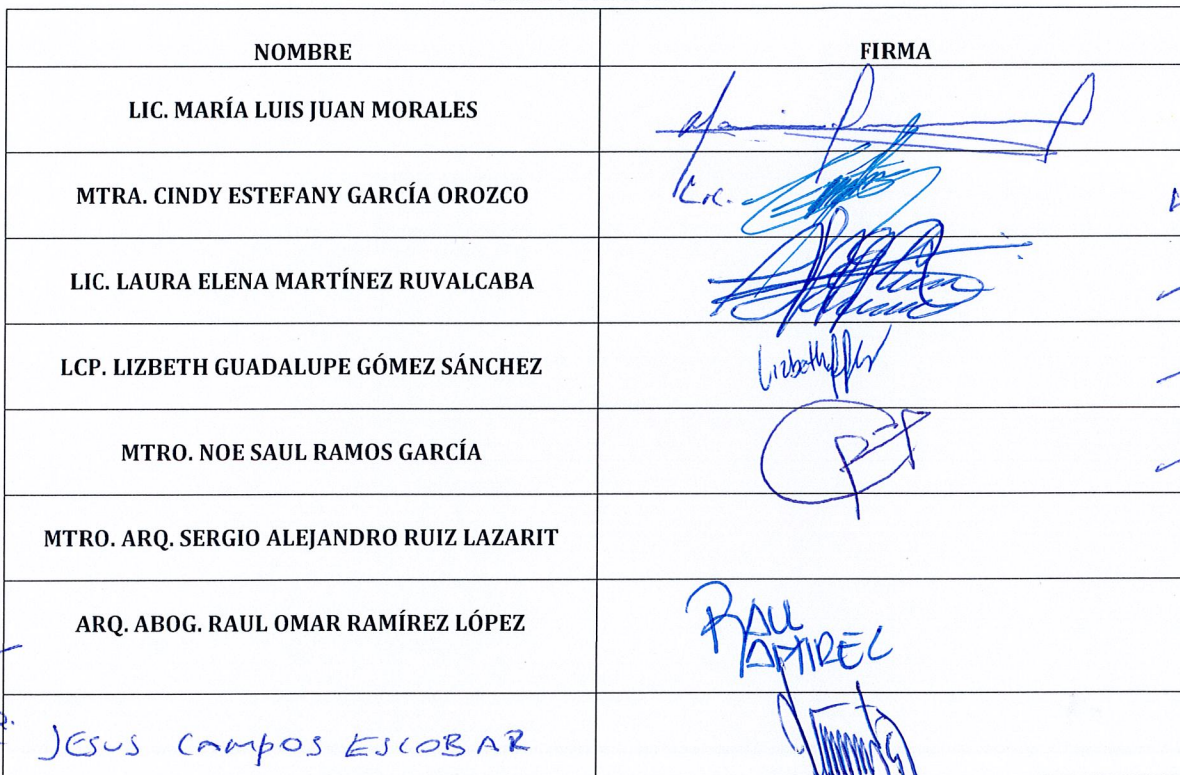 NOMBRE FIRMA
LIC. MARÍA LUIS JUAN MORALES
MTRA. CINDY ESTEFANY GARCÍA OROZCO Lic.
LIC. LAURA ELENA MARTÍNEZ RUVALCABA
LCP. LIZBETH GUADALUPE GÓMEZ SÁNCHEZ
MTRO. NOE SAUL RAMOS GARCÍA
MTRO. ARQ. SERGIO ALEJANDRO RUIZ LAZARIT
ARQ. ABOG. RAUL OMAR RAMÍREZ LÓPEZ RAUL
JESUS CAMPOS ESCOBAR